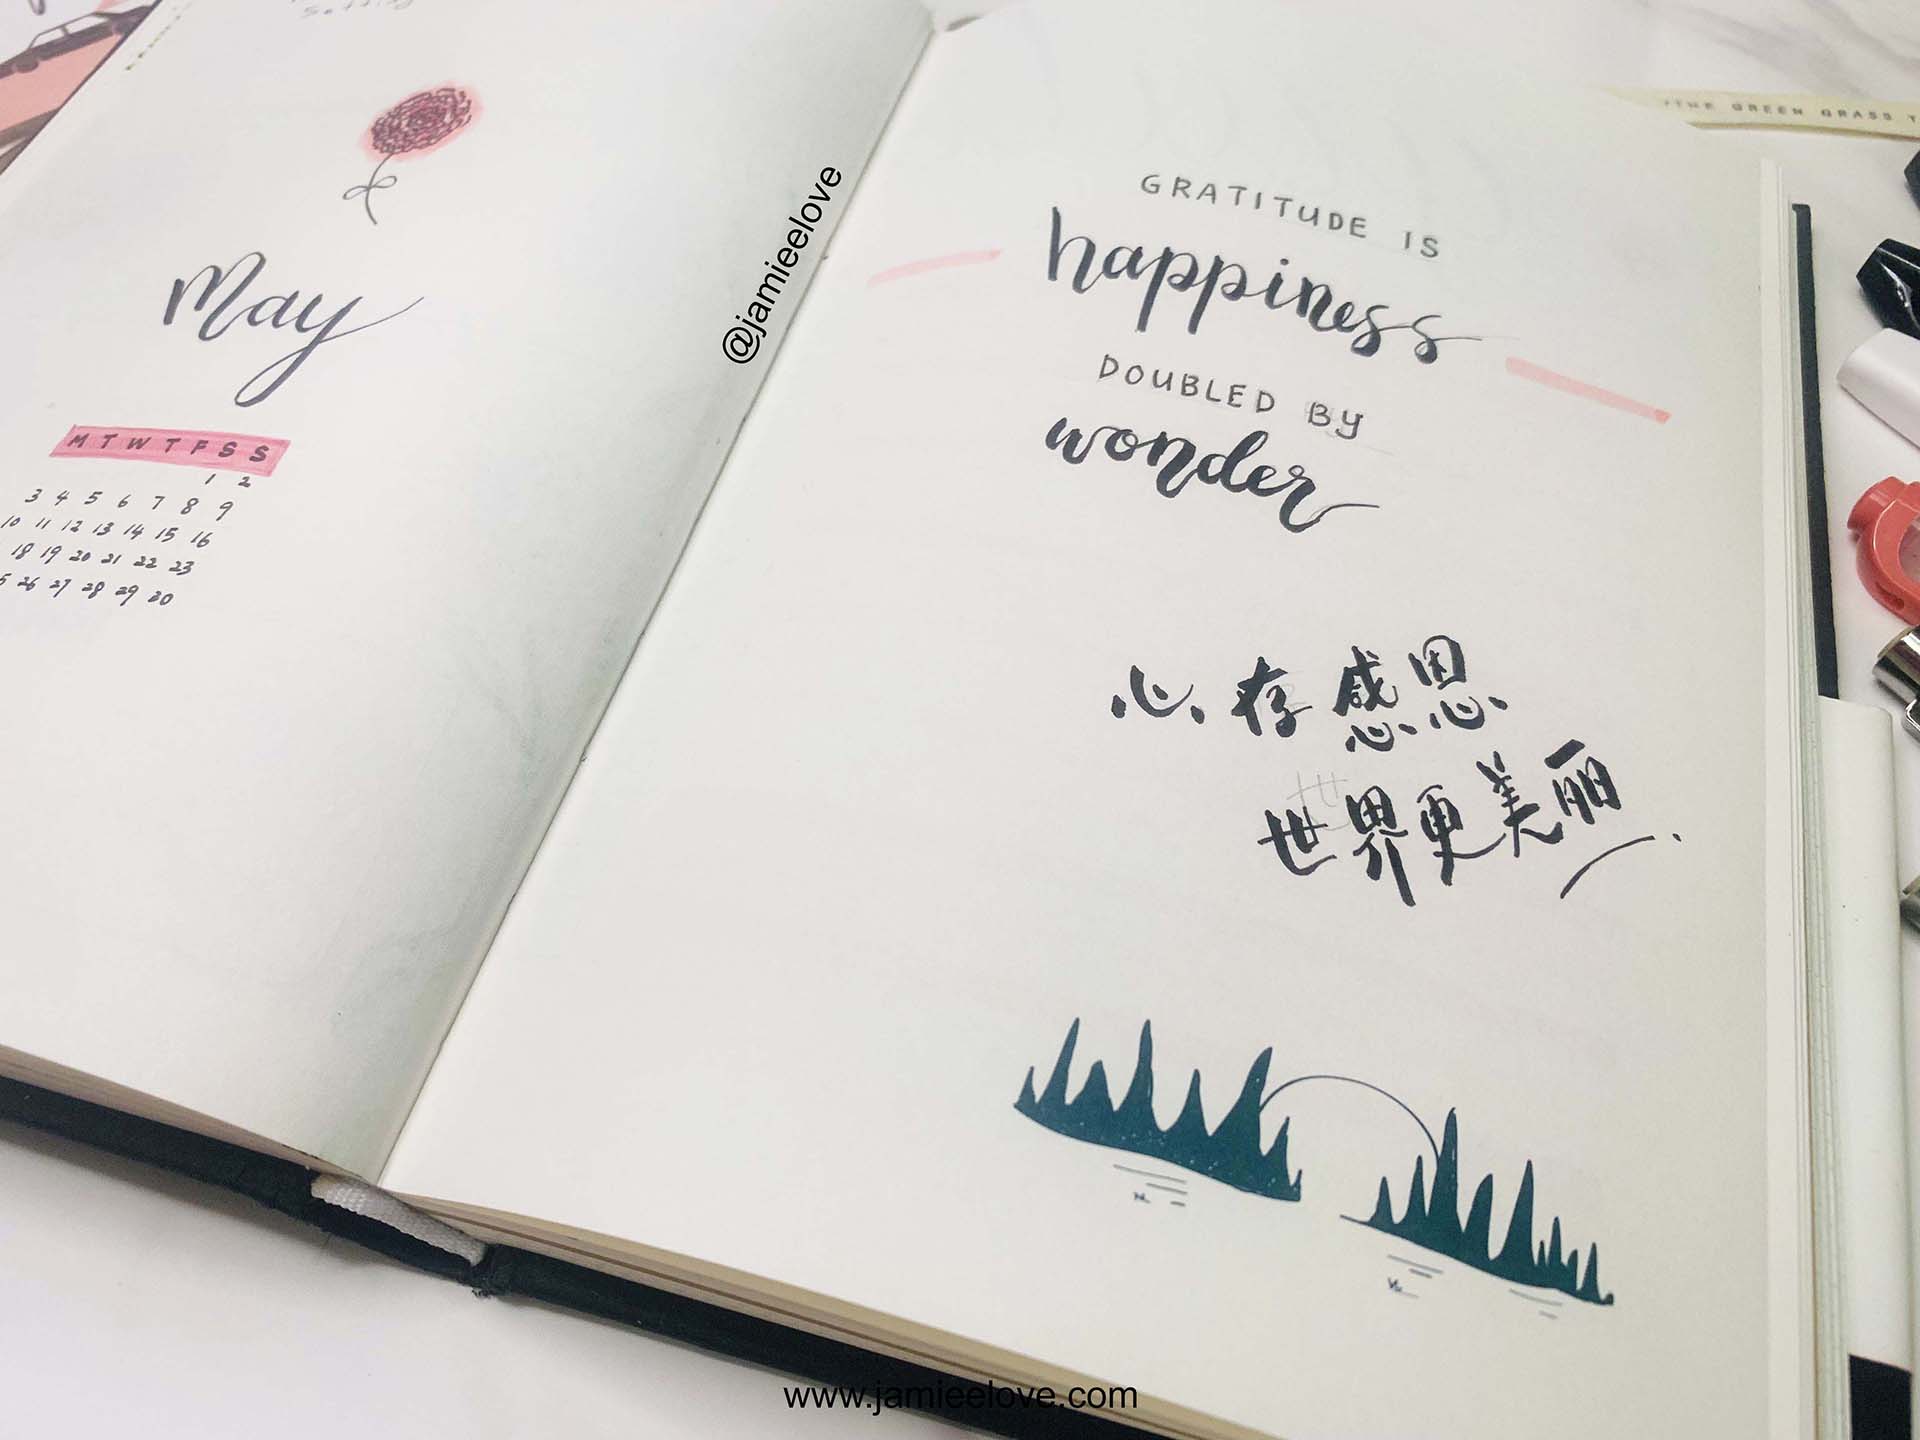 May
M T W T F S S
1 2
3 4 5 6 7 8 9
10 11 12 13 14 15 16
18 19 20 21 22 23
26 27 28 29 30
@jamieelove
GRATITUDE IS
happiness
DOUBLED BY
wonder
心存感恩
世界更美丽
THE GREEN GRASS
www.jamieelove.com